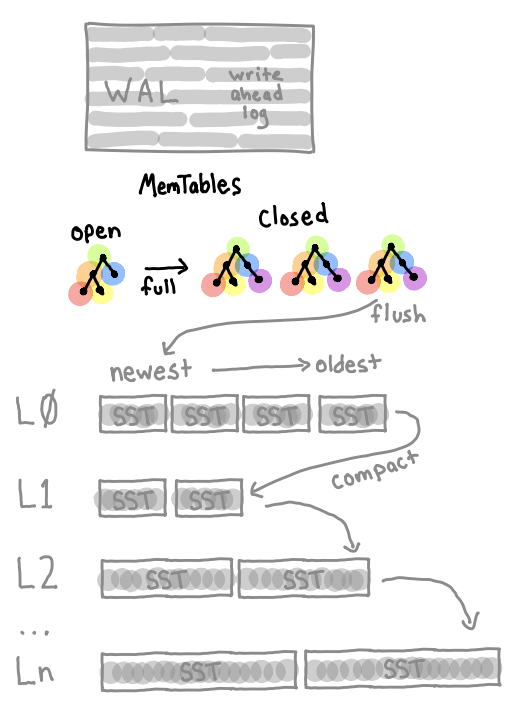 WAL
write
ahead
log
MemTables
open
Closed
full
flush
newest
oldest
LØ
SST SST SST SST
compact
L1
SST SST
L2
SST SST
...
Ln
SST SST